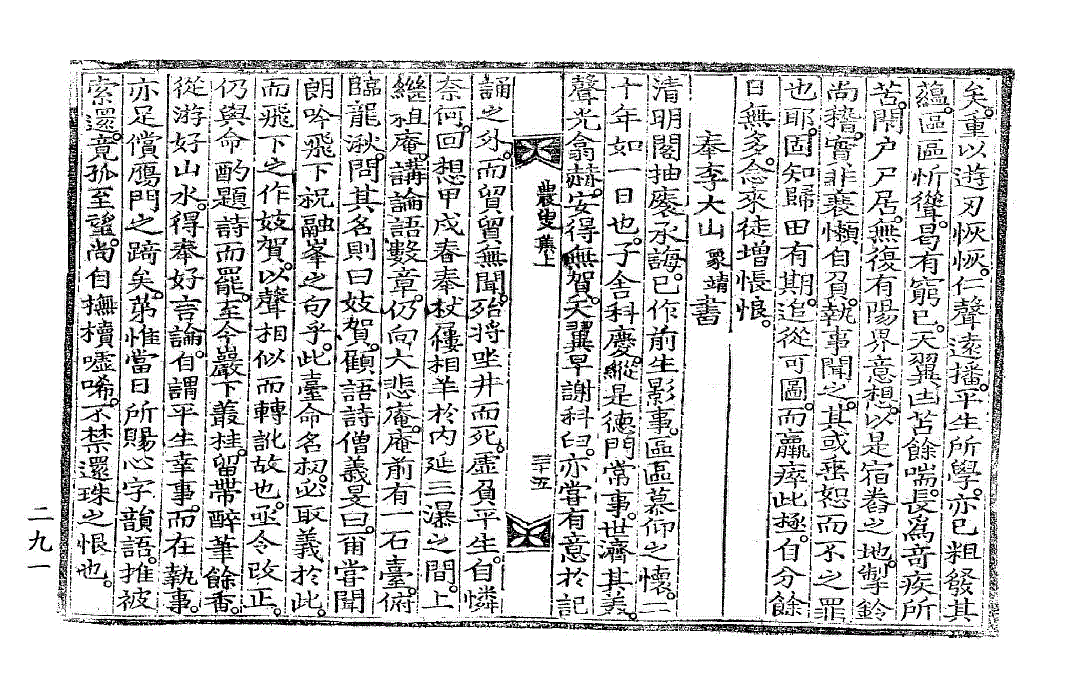 矣。重以遊刃恢恢。仁聲遠播。平生所學。亦已粗發其
蘊。區區忻聳。曷有窮已。天翼凷苫餘喘。長爲奇疾所
苦。閉戶尸居。無復有陽界意想。以是宿眷之地。掣鈴
尙稽。實非衰懶自負。執事聞之。其或垂恕而不之罪
也耶。固知歸田有期。追從可圖。而羸瘁此極。自分餘
日無多。念來徒增悵恨。
奉李大山 象靖 書
淸明閣抽裹承誨。已作前生影事。區區慕仰之懷。二
十年如一日也。子舍科慶。縱是德門常事。世濟其義。
聲光翕赫。安得無賀。天翼早謝科臼。亦嘗有意於記
農叟集上
三十五
誦之外。而留留無聞。殆將坐井而死。虛負平生。自憐
奈何。回想甲戌春奉杖屨相羊於內延三瀑之間。上
繼祖庵。講論語數章。仍向大悲庵。庵前有一石臺。俯
臨龍湫。問其名則曰妓賀。顧語詩僧義旻曰。爾嘗聞
朗吟飛下祝融峯之句乎。此臺命名初。必取義於此。
而飛下之作妓賀。以聲相似而轉訛故也。亟令改正。
仍與命酌題詩而罷。至今巖下叢桂。留帶醉筆餘香。
從游好山水。得奉好言論。自謂平生幸事。而在執事。
亦足償鴈門之踦矣。第惟當日所賜心字韻語。推被
索還。竟孤至望。尙自撫櫝噓唏。不禁還珠之恨也。
二九一